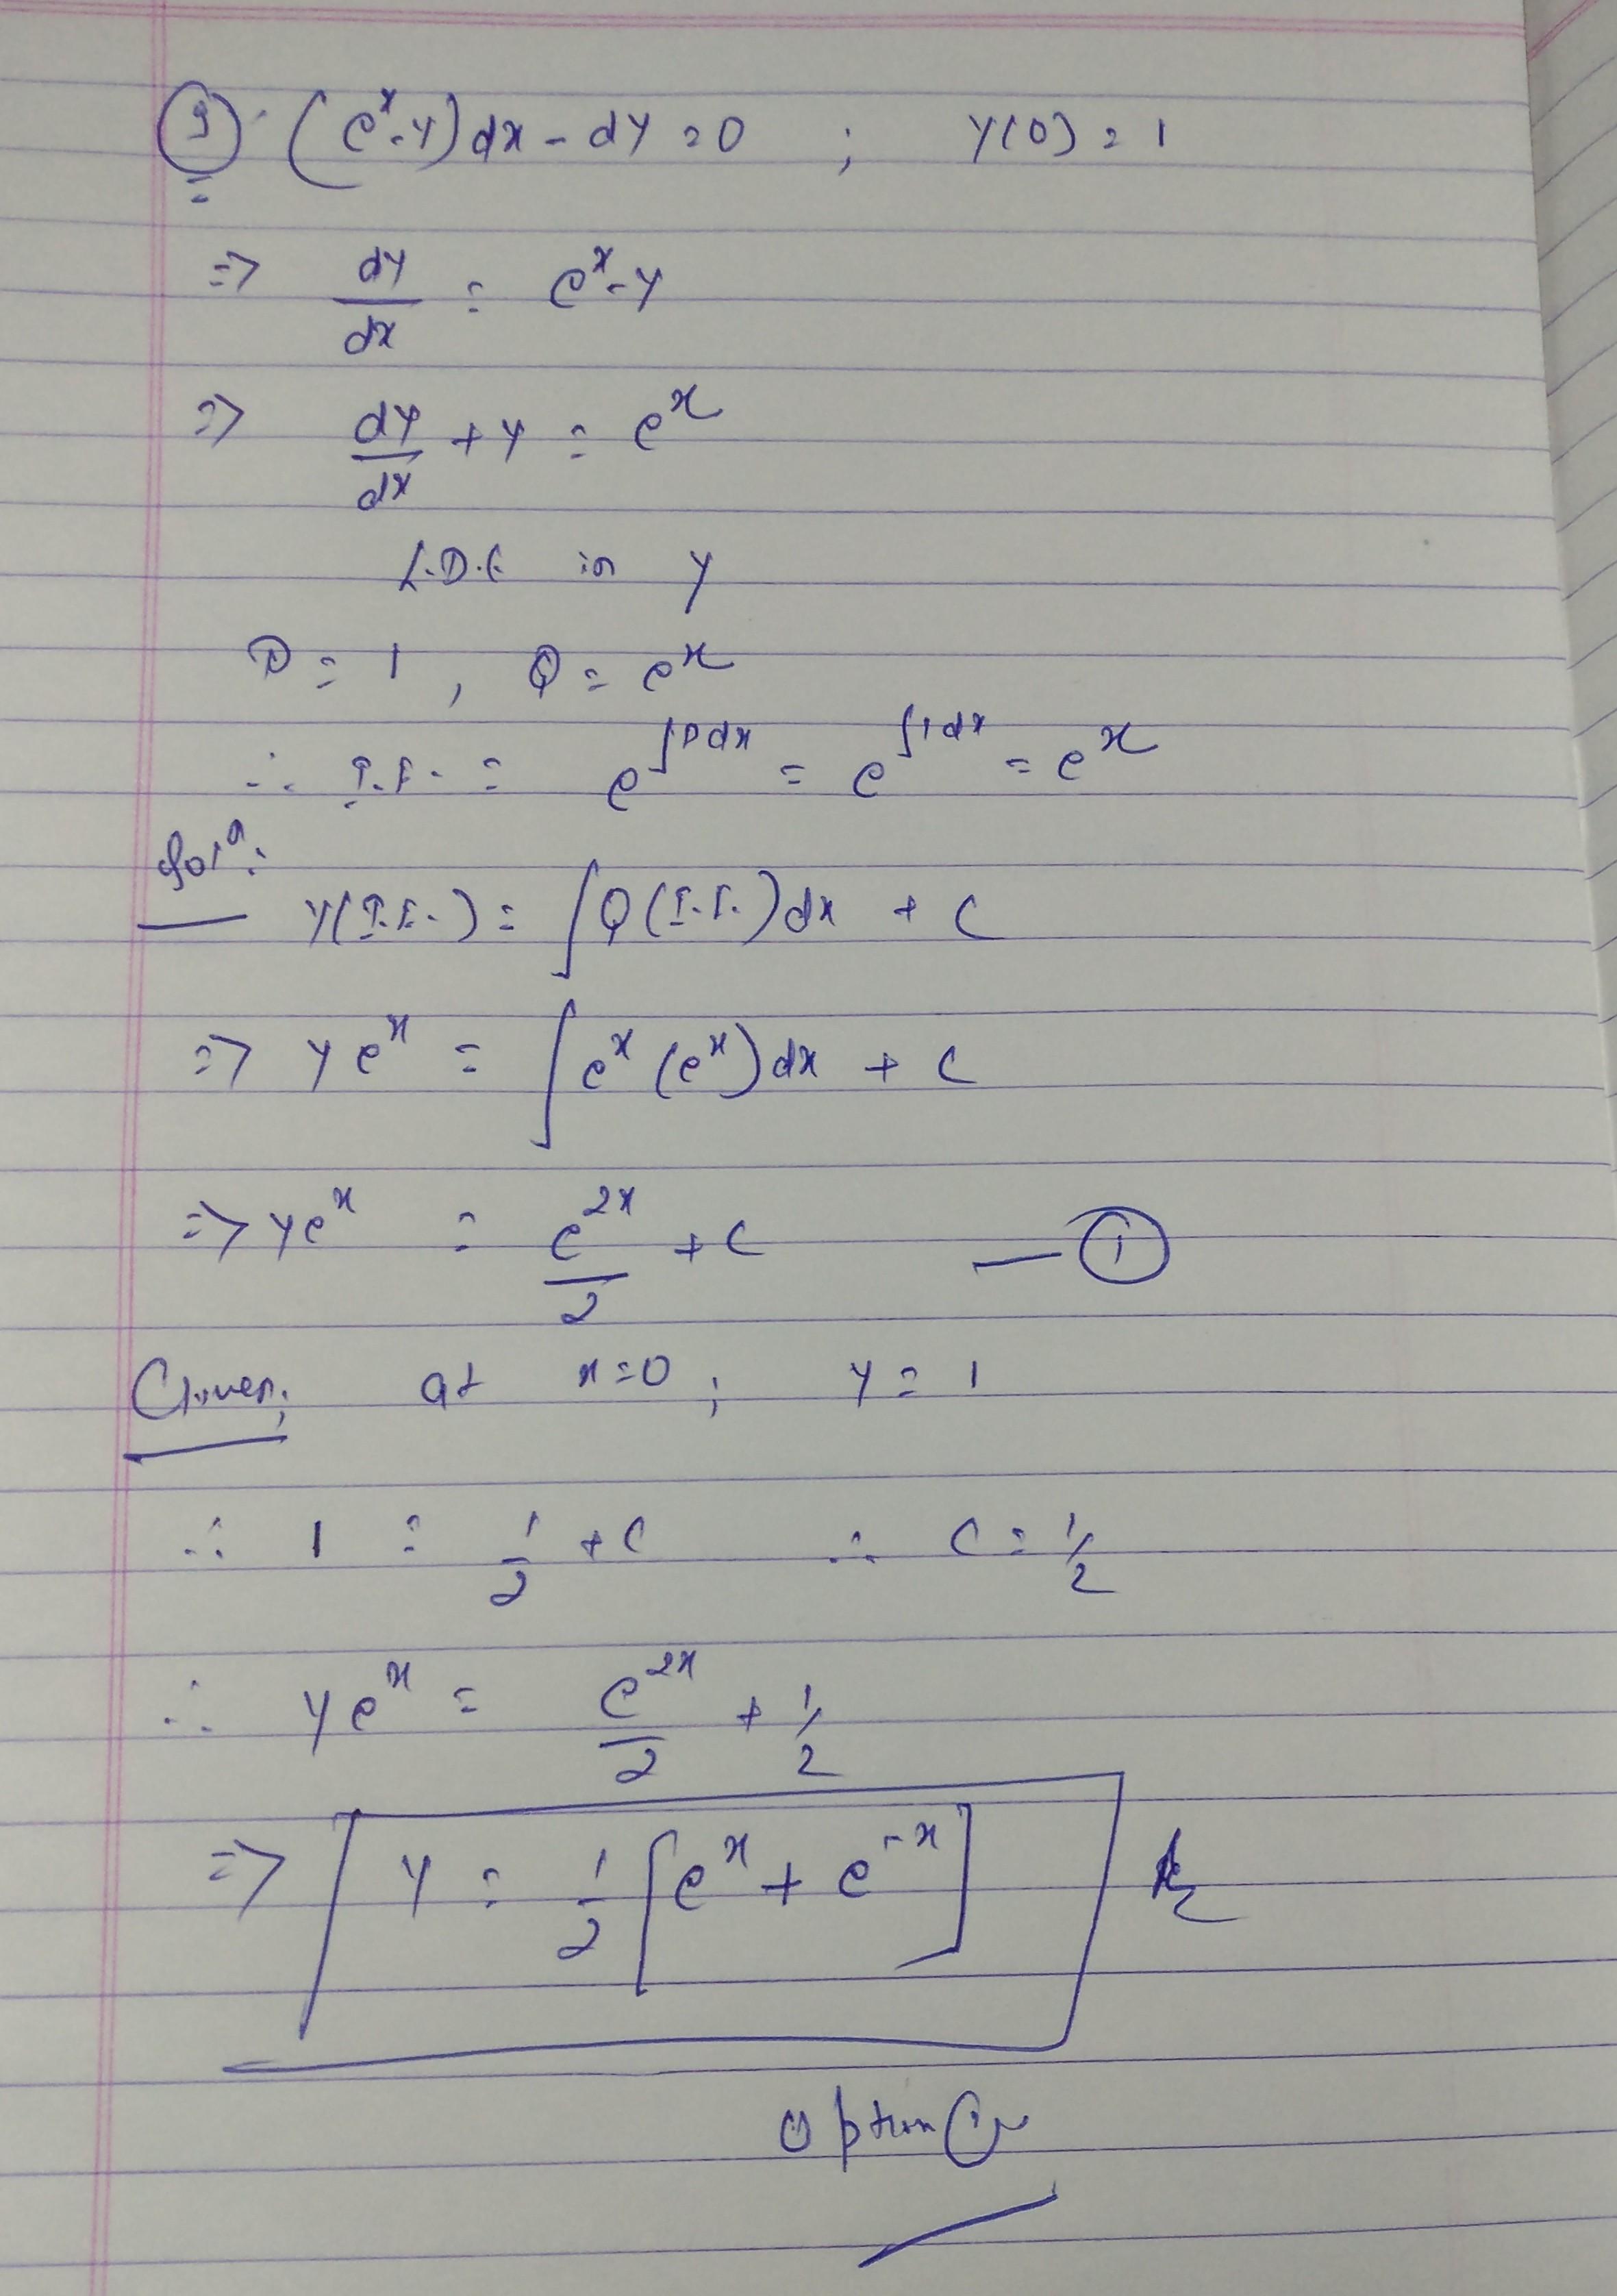 9 (e^x - y) dx - dy = 0 ; y(0) = 1
=> dy/dx = e^x - y
=> dy/dx + y = e^x
L.D.E in y
P = 1 , Q = e^x
∴ I.F. = e^∫P dx = e^∫1 dx = e^x
Solⁿ:
y(I.F.) = ∫Q(I.F.) dx + C
=> y e^x = ∫e^x (e^x) dx + C
=> y e^x = e^2x/2 + C — 1
Given; at x = 0 ; y = 1
∴ 1 = 1/2 + C ∴ C = 1/2
∴ y e^x = e^2x/2 + 1/2
=> y = 1/2 [e^x + e^-x]
option